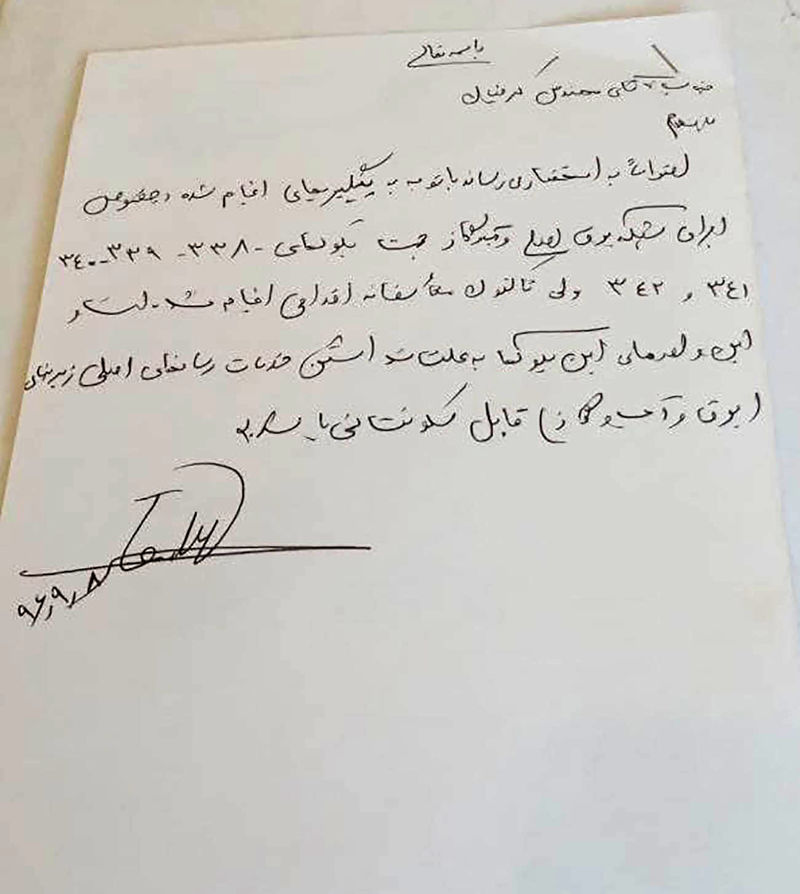 باسمه تعالی
جناب آقای مهندس
با سلام
احتراماً به استحضار می رساند با توجه به پیگیریهای انجام شده در خصوص
اجرای شبکه برق اصلی و گاز جهت بلوکهای ۳۳۸ - ۳۳۹ - ۳۴۰
۳۴۱ و ۳۴۲ ولی تاکنون متأسفانه اقدامی انجام نشده است و
این واحدهای این بلوکها به علت نداشتن خدمات اصلی زیربنایی
(برق و آب و گاز) قابل سکونت نمی باشد.
۹۶,۹,۸